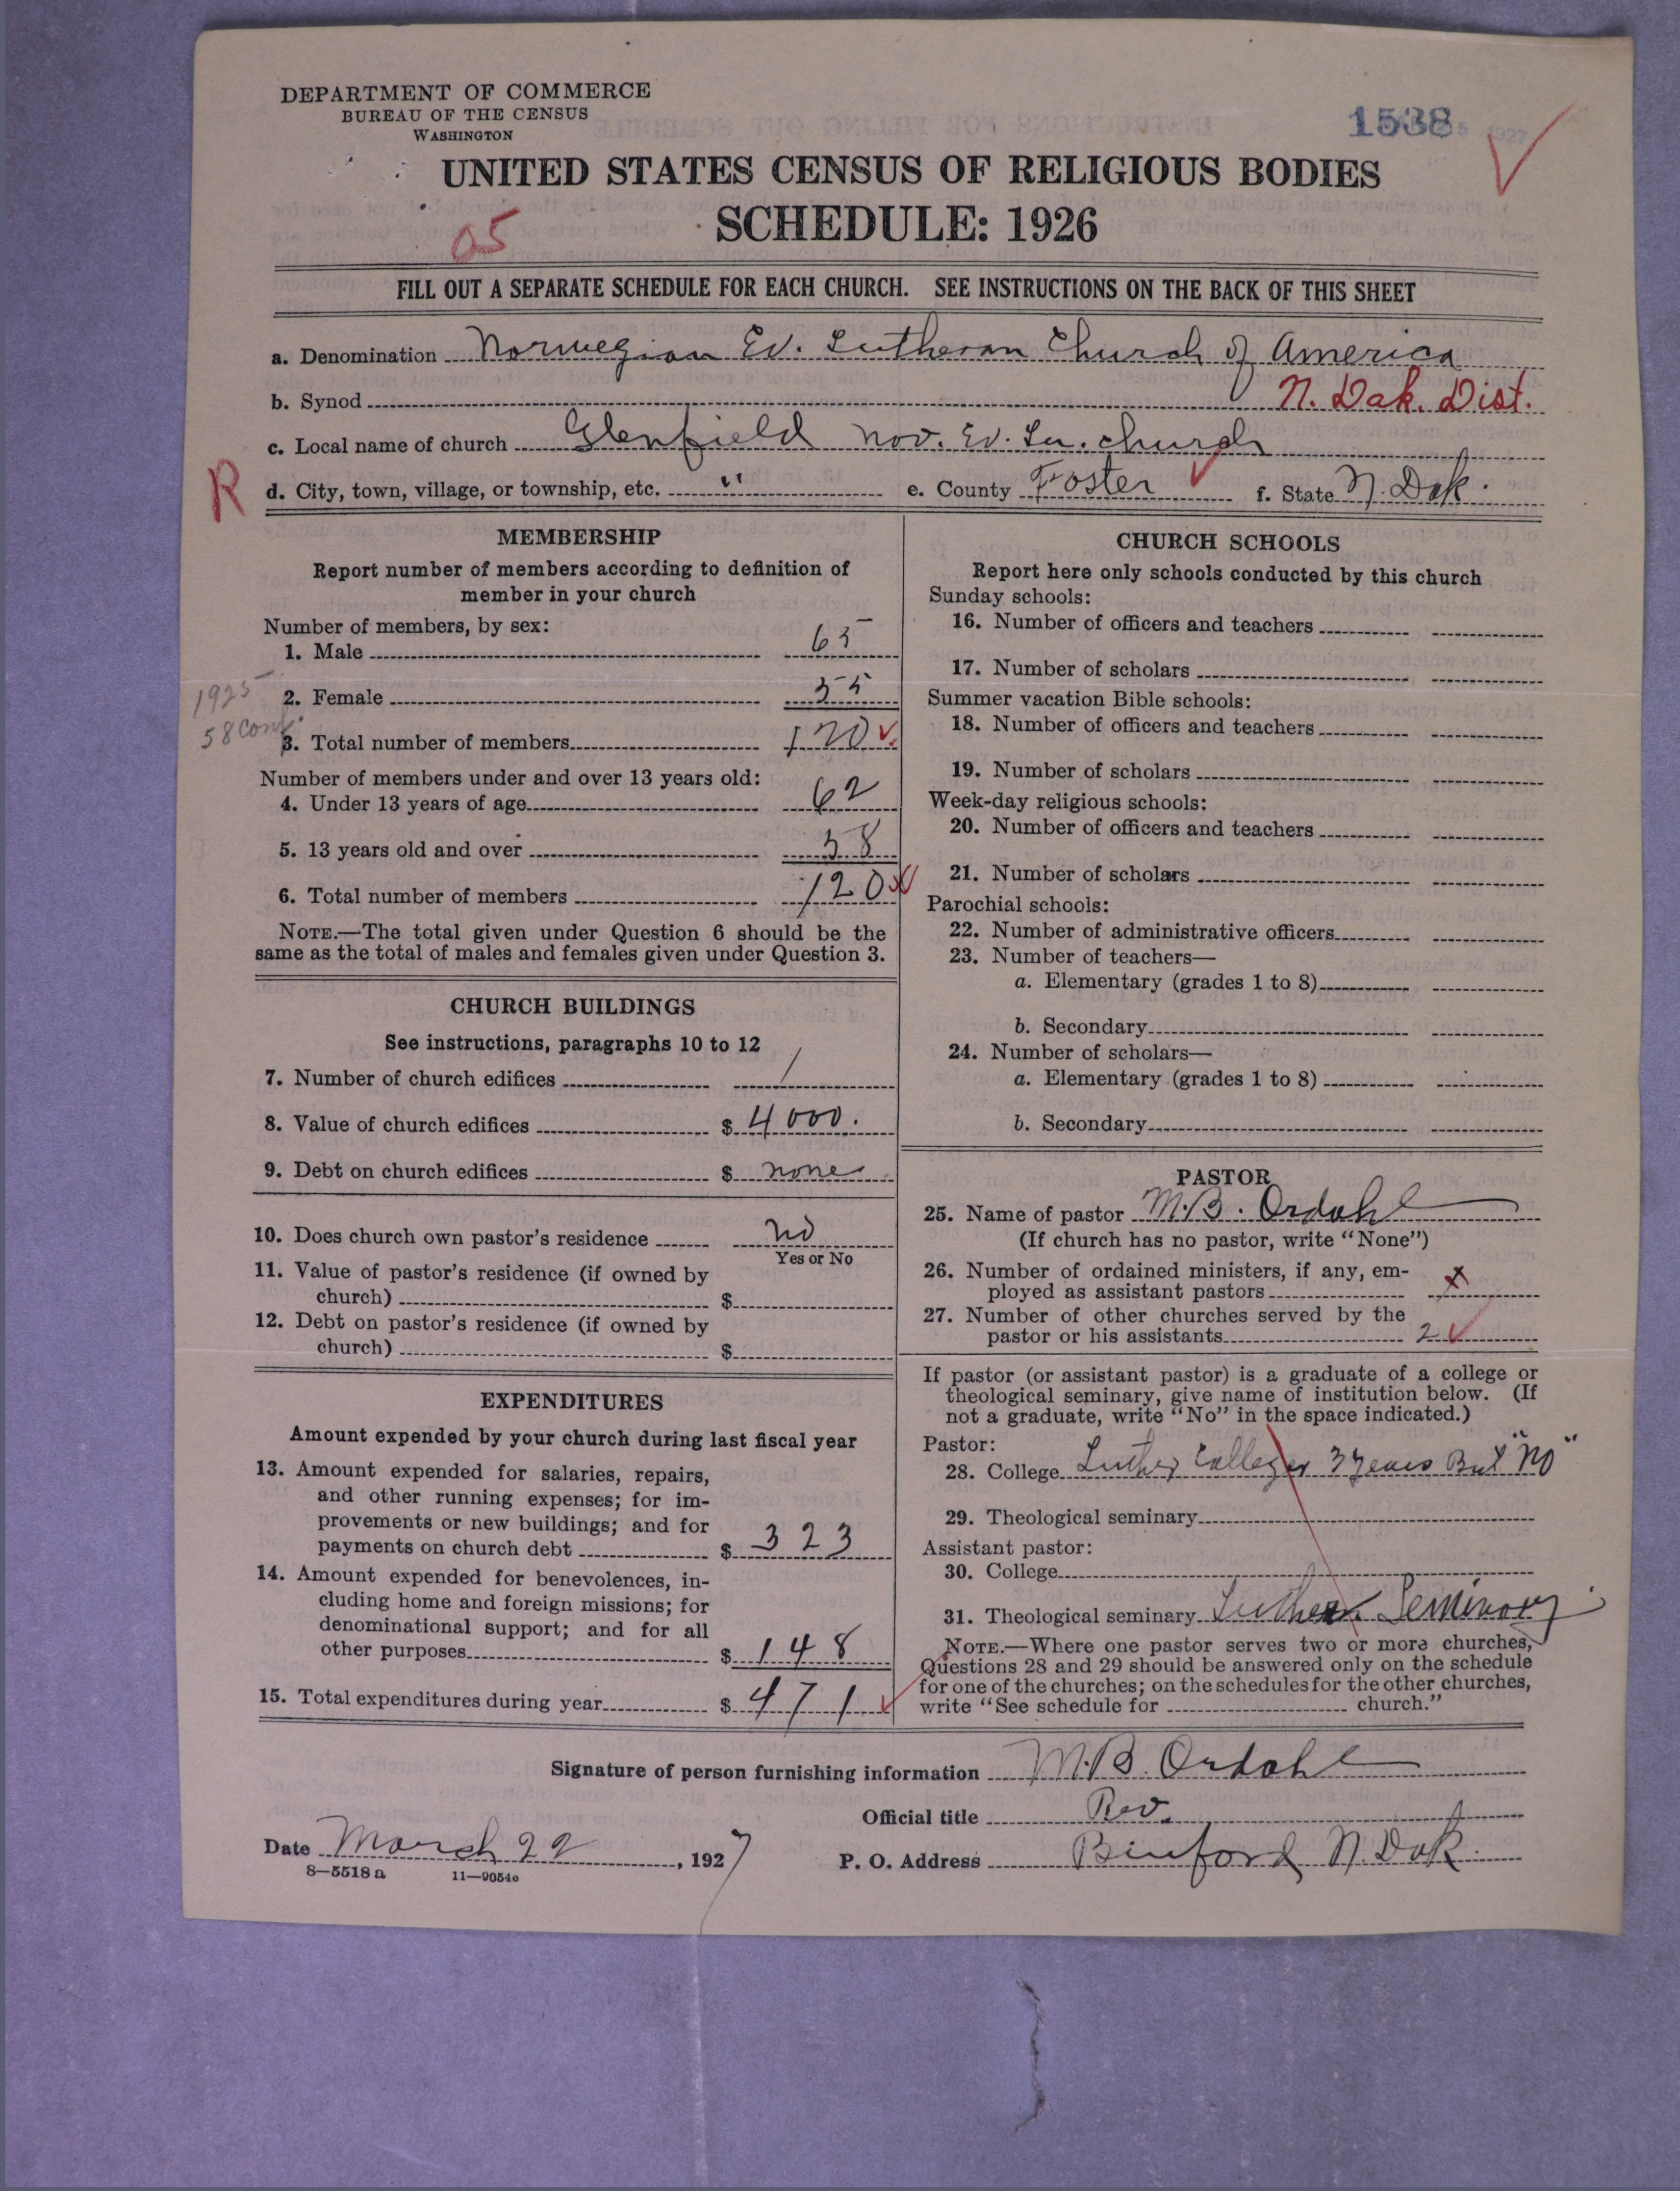 DEPARTMENT OF COMMERCE
BUREAU OF THE CENSUS
WASHINGTON
1538
UNITED STATES CENSUS OF RELIGIOUS BODIES
05
SCHEDULE: 1926
FILL OUT A SEPARATE SCHEDULE FOR EACH CHURCH. SEE INSTRUCTIONS ON THE BACK OF THIS SHEET
a. Denomination Norwegian Ev. Lutheran Church of America
b. Synod N. Dak. Dist.
c. Local name of church Glenfield Nov. Ev. Lu. church
R d. City, town, village, or township, etc. " e. County Foster f. State N. Dak.
MEMBERSHIP
Report number of members according to definition of
member in your church
Number of members, by sex:
1. Male 65
1925
2. Female 55
58 Conf.
3. Total number of members 120
Number of members under and over 13 years old:
4. Under 13 years of age 62
5. 13 years old and over 58
6. Total number of members 120
NOTE.—The total given under Question 6 should be the
same as the total of males and females given under Question 3.
CHURCH BUILDINGS
See instructions, paragraphs 10 to 12
7. Number of church edifices 1
8. Value of church edifices $ 4000.
9. Debt on church edifices $ none
10. Does church own pastor's residence no
Yes or No
11. Value of pastor's residence (if owned by
church) $
12. Debt on pastor's residence (if owned by
church) $
EXPENDITURES
Amount expended by your church during last fiscal year
13. Amount expended for salaries, repairs,
and other running expenses; for im-
provements or new buildings; and for
payments on church debt $ 323
14. Amount expended for benevolences, in-
cluding home and foreign missions; for
denominational support; and for all
other purposes $ 148
15. Total expenditures during year $ 471
CHURCH SCHOOLS
Report here only schools conducted by this church
Sunday schools:
16. Number of officers and teachers
17. Number of scholars
Summer vacation Bible schools:
18. Number of officers and teachers
19. Number of scholars
Week-day religious schools:
20. Number of officers and teachers
21. Number of scholars
Parochial schools:
22. Number of administrative officers
23. Number of teachers—
a. Elementary (grades 1 to 8)
b. Secondary
24. Number of scholars—
a. Elementary (grades 1 to 8)
b. Secondary
PASTOR
25. Name of pastor M.B. Ordahl
(If church has no pastor, write "None")
26. Number of ordained ministers, if any, em-
ployed as assistant pastors x
27. Number of other churches served by the
pastor or his assistants 2
If pastor (or assistant pastor) is a graduate of a college or
theological seminary, give name of institution below. (If
not a graduate, write "No" in the space indicated.)
Pastor:
28. College Luther College 3 years But "No"
29. Theological seminary
Assistant pastor:
30. College
31. Theological seminary Luther Seminary
NOTE.—Where one pastor serves two or more churches,
Questions 28 and 29 should be answered only on the schedule
for one of the churches; on the schedules for the other churches,
write "See schedule for church."
Signature of person furnishing information M.B. Ordahl
Official title Rev.
Date March 22, 1927 P. O. Address Binford N. Dak.
8—5518 a 11—9054c